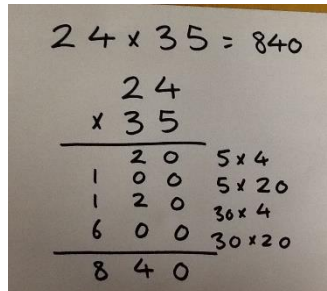 24 x 35 = 840
24
x 35
20 5 x 4
100 5 x 20
120 30 x 4
600 30 x 20
840